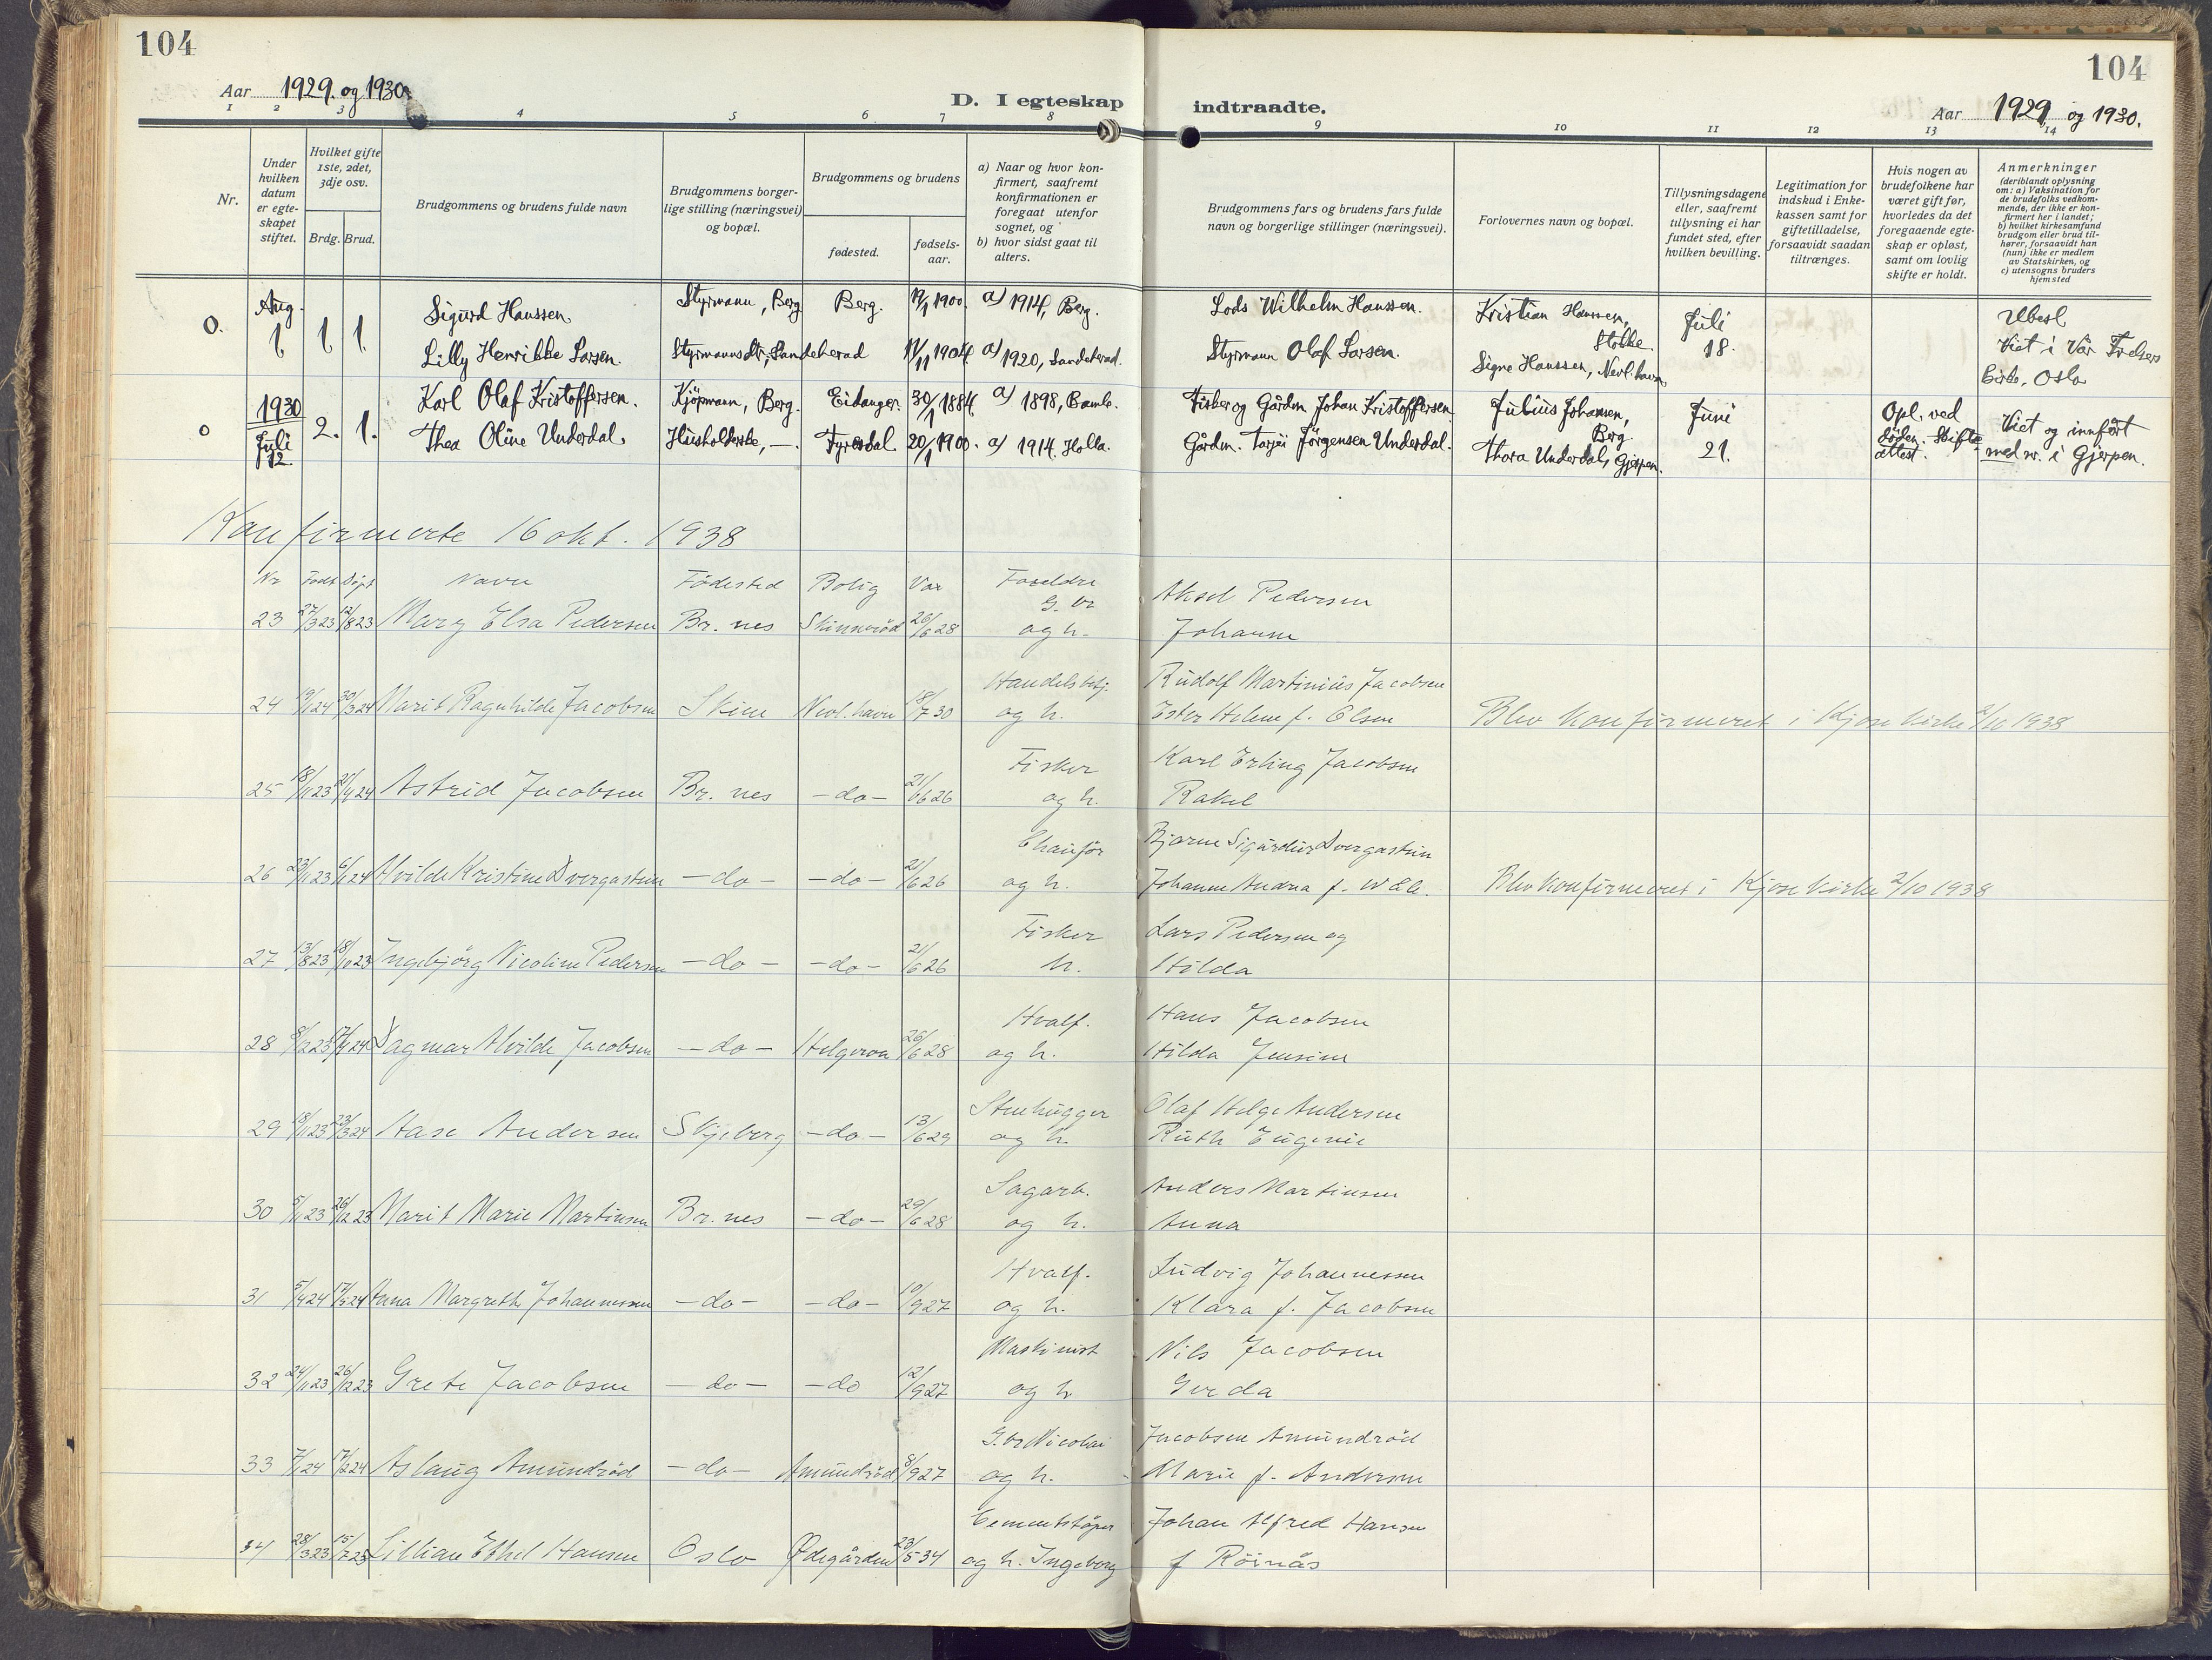 104
104
Aar 1929. og 1930.
D. I egteskap indtraadte.
Aar 1929 og 1930.
1 2 3 4 5 6 7 8 9 10 11 12 13 14
Nr.
Under hvilken datum er egteskapet stiftet.
Hvilket gifte 1ste, 2det, 3dje osv.
Brdg. Brud.
Brudgommens og brudens fulde navn
Brudgommens borgerlige stilling (næringsvei) og bopæl.
Brudgommens og brudens
fødested.
fødselsaar.
a) Naar og hvor konfirmert, saafremt konfirmationen er foregaat utenfor sognet, og
b) hvor sidst gaat til alters.
Brudgommens fars og brudens fars fulde navn og borgerlige stillinger (næringsvei).
Forlovernes navn og bopæl.
Tillysningsdagene eller, saafremt tillysning ei har fundet sted, efter hvilken bevilling.
Legitimation for indskud i Enkekassen samt for giftetilladelse, forsaavidt saadan tiltrænges.
Hvis nogen av brudefolkene har været gift før, hvorledes da det foregaaende egteskap er opløst, samt om lovlig skifte er holdt.
Anmerkninger
(deriblandt oplysning om: a) Vaksination for de brudefolks vedkommende, der ikke er konfirmert her i landet; b) hvilket kirkesamfund brudgom eller brud tilhører, forsaavidt han (hun) ikke er medlem av Statskirken, og c) utensogns bruders hjemsted
0. Aug. 1 1 1. Sigurd Hanssen. Styrmann, Berg Berg. 19/1 1900. a) 1914, Berg. Lods Wilhelm Hanssen. Kristian Hanssen, Stokke. Juli 18. Ubesl
Lilly Henrikke Larsen. Styrmannsdtr, Sandeherad 11/11 1904. a) 1920, Sandeherad. Styrmann Olaf Larsen. Signe Hanssen, Nevl.havn. Viet i Vår Frelsers Kirke, Oslo
0 1930 Juli 12. 2. 1. Karl Olaf Kristoffersen. Kjöpmann, Berg. Eidanger. 30/1 1884. a) 1898, Bamle. Fisker og Gårdm. Johan Kristoffersen. Julius Johansen, Berg. Juni 21. Opl. ved döden. Skifteattest. Viet og innfört
Thea Oline Underdal. Husholderske, —. Fyresdal. 20/1 1900. a) 1914. Holla. Gårdm. Tarjei Jörgensen Underdal. Thora Underdal, Gjerpen. med nr. i Gjerpen.
Konfirmerte 16 okt. 1938
Nr Født Døpt Navn Fødested Bolig Vax Foreldre
23 27/3 23 12/8 23 Mary Elsa Pedersen Br. nes Skinnerød 26/6 28 G. br Aksel Pedersen
og h. Johanne
24 19/1 24 30/3 24 Marit Ragnhilde Jacobsen Skien Nevl. havn 18/7 30 Handelsbetj. Rudolf Martinius Jacobsen
og h. Ester Helene f. Olsen Blev konfirmeret i Kjose kirke 2/10 1938
25 18/11 23 21/4 24 Astrid Jacobsen Br. nes — do — 21/6 26 Fisker Karl Erling Jacobsen
og h. Rakel
26 23/11 23 6/1 24 Alvilde Kristine Dvergastein — do — — do — 21/6 26 Chaufør Bjarne Sigurdur Dvergastein
og h. Johanne Andrea f. Blev konfirmeret i Kjose kirke 2/10 1938
27 13/8 23 18/10 23 Ingebjörg Nicoline Pedersen — do — — do — 21/6 26 Fisker Lars Pedersen og
h. Hilda
28 9/12 23 17/4 24 Dagmar Alvilde Jacobsen — do — Helgeroa 26/6 28 Hvalf. Hans Jacobsen
og h. Hilda Jensine
29 18/11 23 23/3 24 Aase Andersen Skjeberg — do — 13/6 29 Stenhugger Olaf Helge Andersen
og h. Ruth Eugenie
30 5/11 23 26/12 23 Marit Marie Martinsen Br. nes — do — 29/6 28 Sagarb. Anders Martinsen
og h. Anna
31 5/4 24 17/5 24 Anna Margrethe Johannessen — do — — do — 10/9 27 Hvalf. Ludvig Johannessen
og h. Klara f. Jacobsen
32 24/11 23 26/12 23 Grete Jacobsen — do — — do 12/9 27 Maskinist Nils Jacobsen
og h Gerda
33 7/1 24 17/2 24 Aslaug Amundröd — do — Amundröd 8/9 27 G.br Nicolai Jacobsen Amundröd
og h. Marie f. Andersen
34 28/3 23 15/7 23 Lillian Ethel Hansen Oslo Ødegården 23/5 34 Cementstøper Johan Alfred Hansen
og h. Ingeborg f Röinås